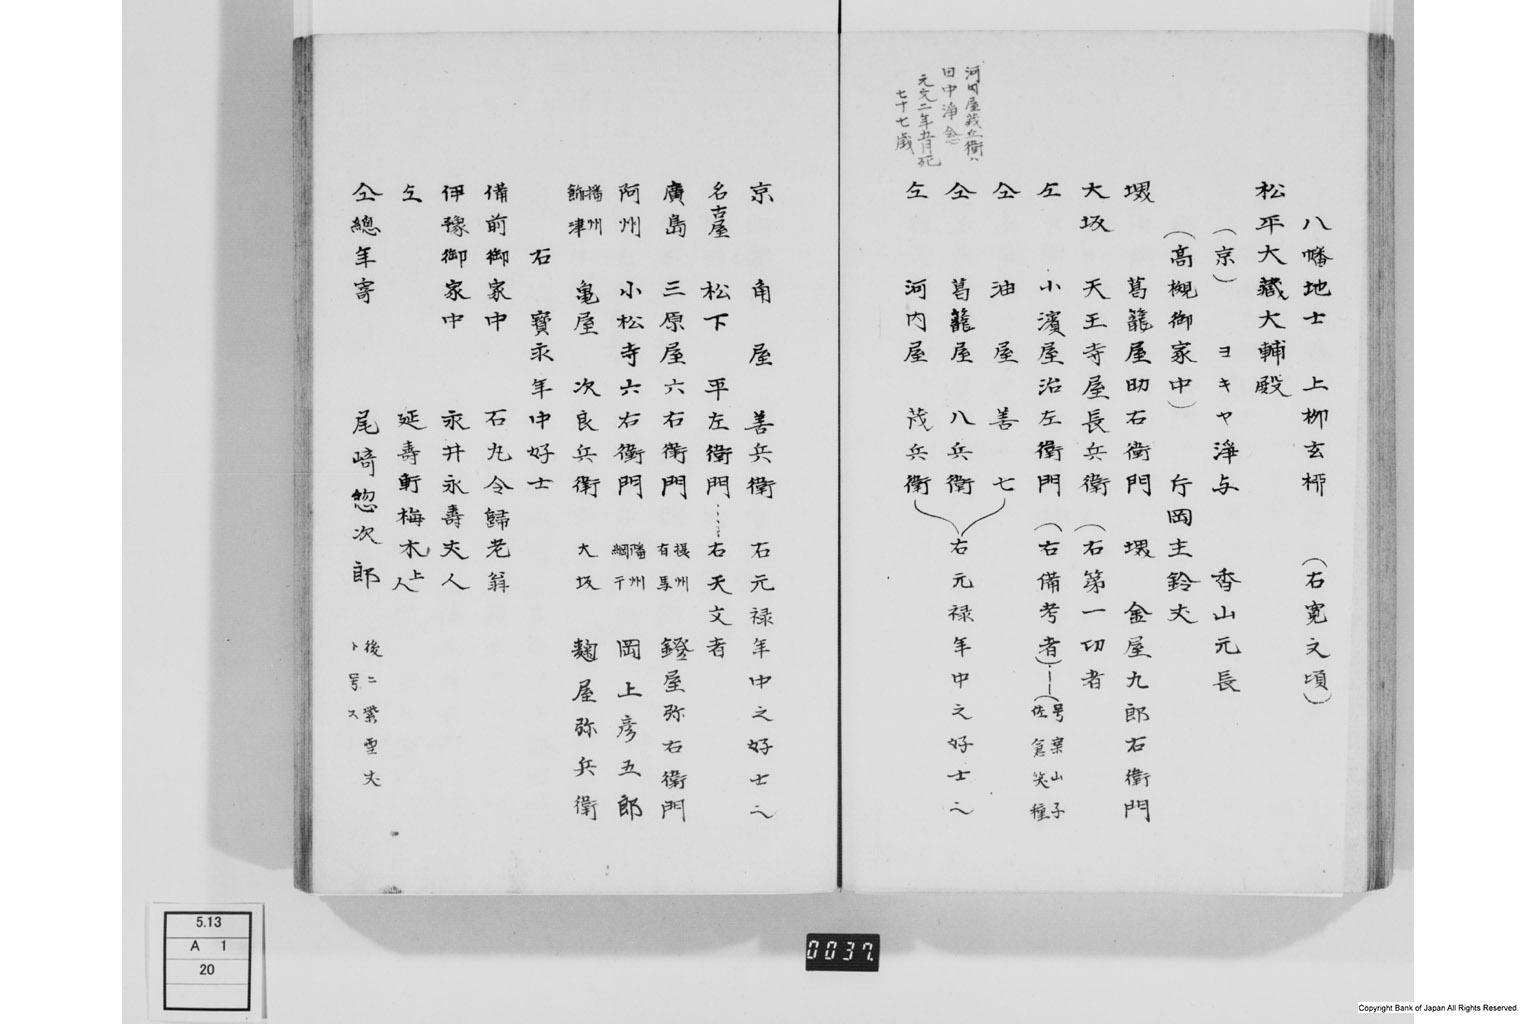 八幡地士　上柳玄柳　（右寛文頃）
松平大藏大輔殿
（京）　ヨキヤ淨与　香山元長
（高槻御家中）　片岡主鈴夫
堺　葛籠屋助右衛門　堺　金屋九郎右衛門
大坂　天王寺屋長兵衛　（右第一切者
仝　小濱屋治左衛門　（右備考者）――（号案山子
佐倉笑種
仝　油屋　善七
仝　葛籠屋　八兵衛　右元禄年中之好士也
仝　河内屋　茂兵衛
河内屋茂兵衛ハ
田中淨念
元文二年五月死
七十七歳
京　角屋　善兵衛　右元禄年中之好士也
名古屋　松下　平左衛門……右天文者
廣島　三原屋六右衛門　摂州有馬　鐙屋弥右衛門
阿州　小松寺六右衛門　播州網干　岡上彦五郎
播州飾津　亀屋　次良兵衛　大坂　麹屋弥兵衛
右　寶永年中好士
備前御家中　石丸令歸老翁
伊豫御家中　永井永壽夫人
仝　延壽軒梅木上人
仝總年寄　尾﨑惣次郎　後ニ紫雪丈
ト号ス
5.13
A 1
20
0037.
Copyright Bank of Japan All Rights Reserved.